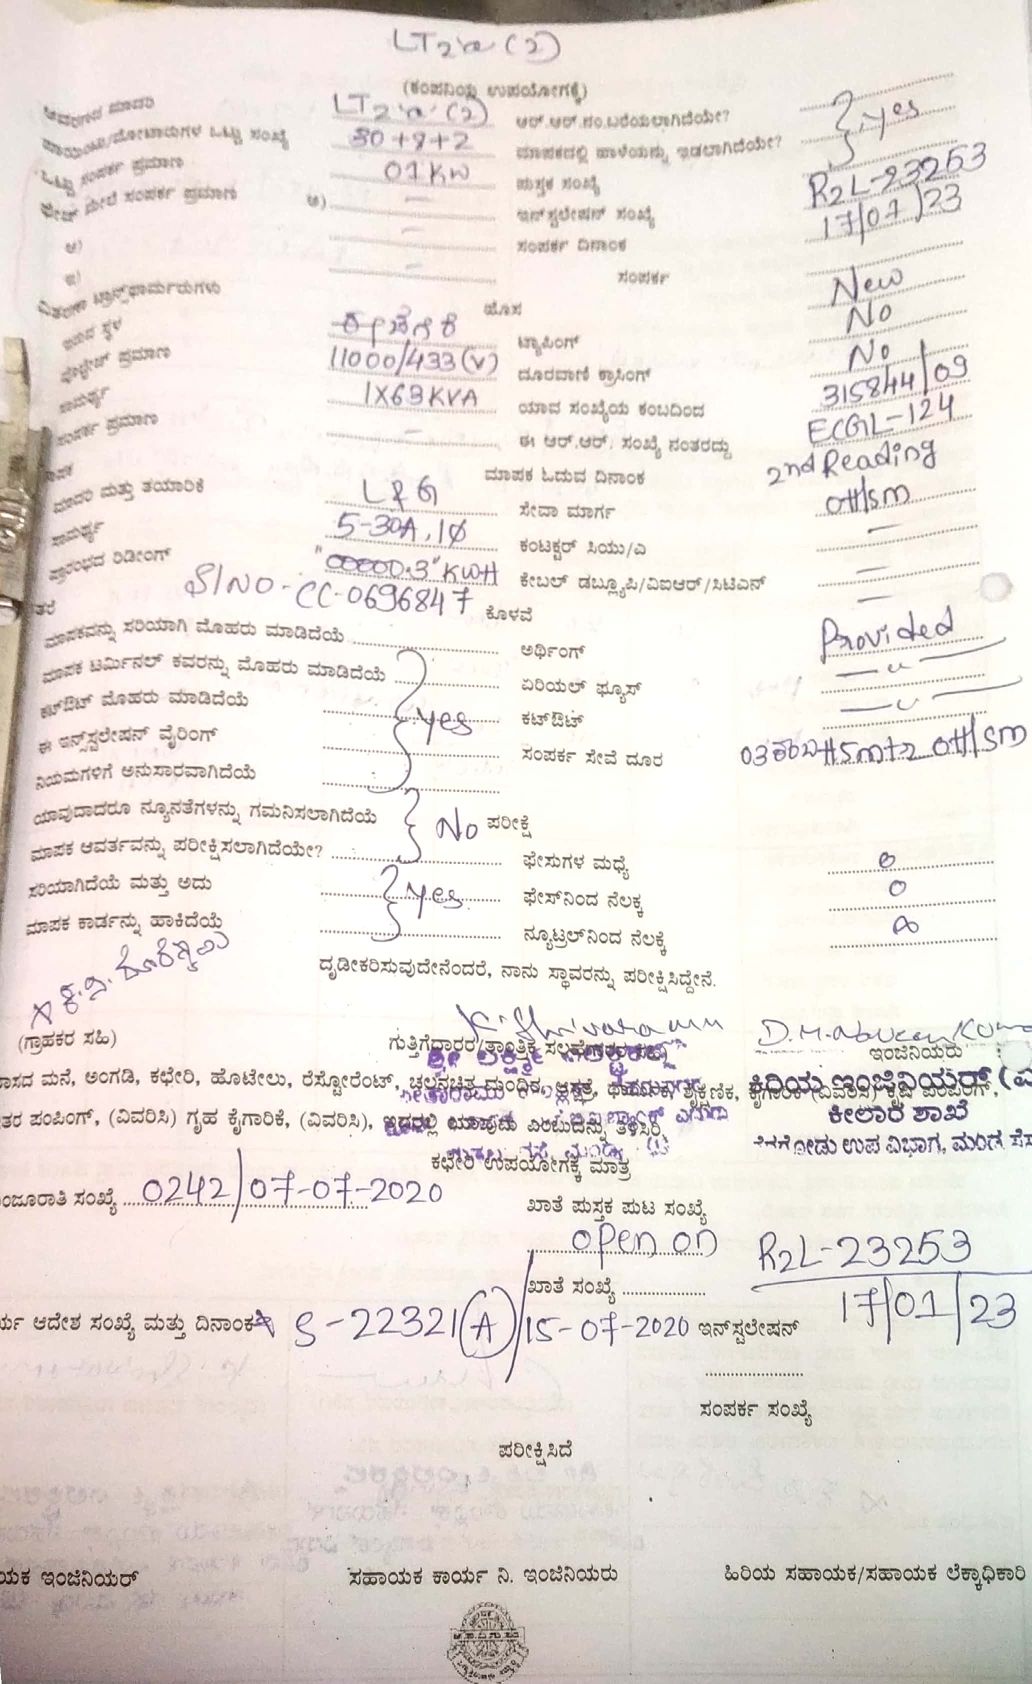 LT2'a'(2)
(ಕಂಪನಿಯ ಉಪಯೋಗಕ್ಕೆ)
ಮಾದರಿ LT2'a'(2) ಆರ್.ಆರ್.ನಂ.ಬರೆಯಲಾಗಿದೆಯೇ? yes
ಒಟ್ಟು ಸಂಖ್ಯೆ 30+9+2 ಮಾಪಕದಲ್ಲಿ ಹಾಳೆಯನ್ನು ಇಡಲಾಗಿದೆಯೇ?
ಒಟ್ಟು ಸಂಪರ್ಕ ಪ್ರಮಾಣ 01 KW ಪುಸ್ತಕ ಸಂಖ್ಯೆ
ಮೇಲೆ ಸಂಪರ್ಕ ಪ್ರಮಾಣ ಅ) – ಇನ್‌ಸ್ಟಲೇಷನ್ ಸಂಖ್ಯೆ R2L-23253
ಆ) – ಸಂಪರ್ಕ ದಿನಾಂಕ 17/01/23
ಇ) – ಸಂಪರ್ಕ
ವಿತರಣಾ ಟ್ರಾನ್ಸ್‌ಫಾರ್ಮರುಗಳು ಹೊಸ New
ಇರುವ ಸ್ಥಳ ಟ್ಯಾಪಿಂಗ್ No
ವೋಲ್ಟೇಜ್ ಪ್ರಮಾಣ 11000/433(V) ದೂರವಾಣಿ ಕ್ರಾಸಿಂಗ್ No
ಸಾಮರ್ಥ್ಯ 1X63KVA ಯಾವ ಸಂಖ್ಯೆಯ ಕಂಬದಿಂದ 315844/09
ಸಂಪರ್ಕ ಪ್ರಮಾಣ – ಈ ಆರ್.ಆರ್. ಸಂಖ್ಯೆ ನಂತರದ್ದು ECGL-124
ಮಾಪಕ ಓದುವ ದಿನಾಂಕ 2nd Reading
ಮಾದರಿ ಮತ್ತು ತಯಾರಿಕೆ L&G ಸೇವಾ ಮಾರ್ಗ OH/5m
ಸಾಮರ್ಥ್ಯ 5-30A, 1ϕ ಕಂಟಕ್ಟರ್ ಸಿಯು/ಎ –
ಪ್ರಾರಂಭದ ರಿಡೀಂಗ್ "00000.3" KWH ಕೇಬಲ್ ಡಬ್ಲ್ಯೂಪಿ/ವಿಐಆರ್/ಸಿಟಿಎನ್ –
Sl NO - CC-0696847 ಕೊಳವೆ –
ಮಾಪಕವನ್ನು ಸರಿಯಾಗಿ ಮೊಹರು ಮಾಡಿದೆಯೆ ಅರ್ಥಿಂಗ್ Provided
ಮಾಪಕ ಟರ್ಮಿನಲ್ ಕವರನ್ನು ಮೊಹರು ಮಾಡಿದೆಯೆ ಏರಿಯಲ್ ಫ್ಯೂಸ್ –"–
ಕಟ್‌ಔಟ್ ಮೊಹರು ಮಾಡಿದೆಯೆ yes ಕಟ್‌ಔಟ್ –"–
ಈ ಇನ್‌ಸ್ಟಲೇಷನ್ ವೈರಿಂಗ್ ಸಂಪರ್ಕ ಸೇವೆ ದೂರ
ನಿಯಮಗಳಿಗೆ ಅನುಸಾರವಾಗಿದೆಯೆ
ಯಾವುದಾದರೂ ನ್ಯೂನತೆಗಳನ್ನು ಗಮನಿಸಲಾಗಿದೆಯೆ No ಪರೀಕ್ಷೆ
ಮಾಪಕ ಆವರ್ತವನ್ನು ಪರೀಕ್ಷಿಸಲಾಗಿದೆಯೇ? ಫೇಸುಗಳ ಮಧ್ಯೆ 0
ಸರಿಯಾಗಿದೆಯೆ ಮತ್ತು ಅದು yes ಫೇಸ್‌ನಿಂದ ನೆಲಕ್ಕೆ 0
ಮಾಪಕ ಕಾರ್ಡನ್ನು ಹಾಕಿದೆಯೆ ನ್ಯೂಟ್ರಲ್‌ನಿಂದ ನೆಲಕ್ಕೆ ∞
ದೃಡೀಕರಿಸುವುದೇನೆಂದರೆ, ನಾನು ಸ್ಥಾವರನ್ನು ಪರೀಕ್ಷಿಸಿದ್ದೇನೆ.
(ಗ್ರಾಹಕರ ಸಹಿ) ಇಂಜಿನಿಯರು
ಮನೆ, ಅಂಗಡಿ, ಕಛೇರಿ, ಹೊಟೇಲು, ರೆಸ್ಟೋರೆಂಟ್, ಚಲನಚಿತ್ರ ಮಂದಿರ, ಕಿರಿಯ ಇಂಜಿನಿಯರ್
ಪಂಪಿಂಗ್, (ವಿವರಿಸಿ) ಗೃಹ ಕೈಗಾರಿಕೆ, (ವಿವರಿಸಿ), ಕೀಲಾರ ಶಾಖೆ
ಉಪ ವಿಭಾಗ, ಮಂಡ್ಯ
ಕಛೇರಿ ಉಪಯೋಗಕ್ಕೆ ಮಾತ್ರ
ಸಂಖ್ಯೆ 0242/07-07-2020 ಖಾತೆ ಪುಸ್ತಕ ಪುಟ ಸಂಖ್ಯೆ
open on R2L-23253
ಖಾತೆ ಸಂಖ್ಯೆ 17/01/23
ಆದೇಶ ಸಂಖ್ಯೆ ಮತ್ತು ದಿನಾಂಕ S-22321(A)/15-07-2020 ಇನ್‌ಸ್ಟಲೇಷನ್
ಸಂಪರ್ಕ ಸಂಖ್ಯೆ
ಪರೀಕ್ಷಿಸಿದೆ
ಇಂಜಿನಿಯರ್ ಸಹಾಯಕ ಕಾರ್ಯ ನಿ. ಇಂಜಿನಿಯರು ಹಿರಿಯ ಸಹಾಯಕ/ಸಹಾಯಕ ಲೆಕ್ಕಾಧಿಕಾರಿ